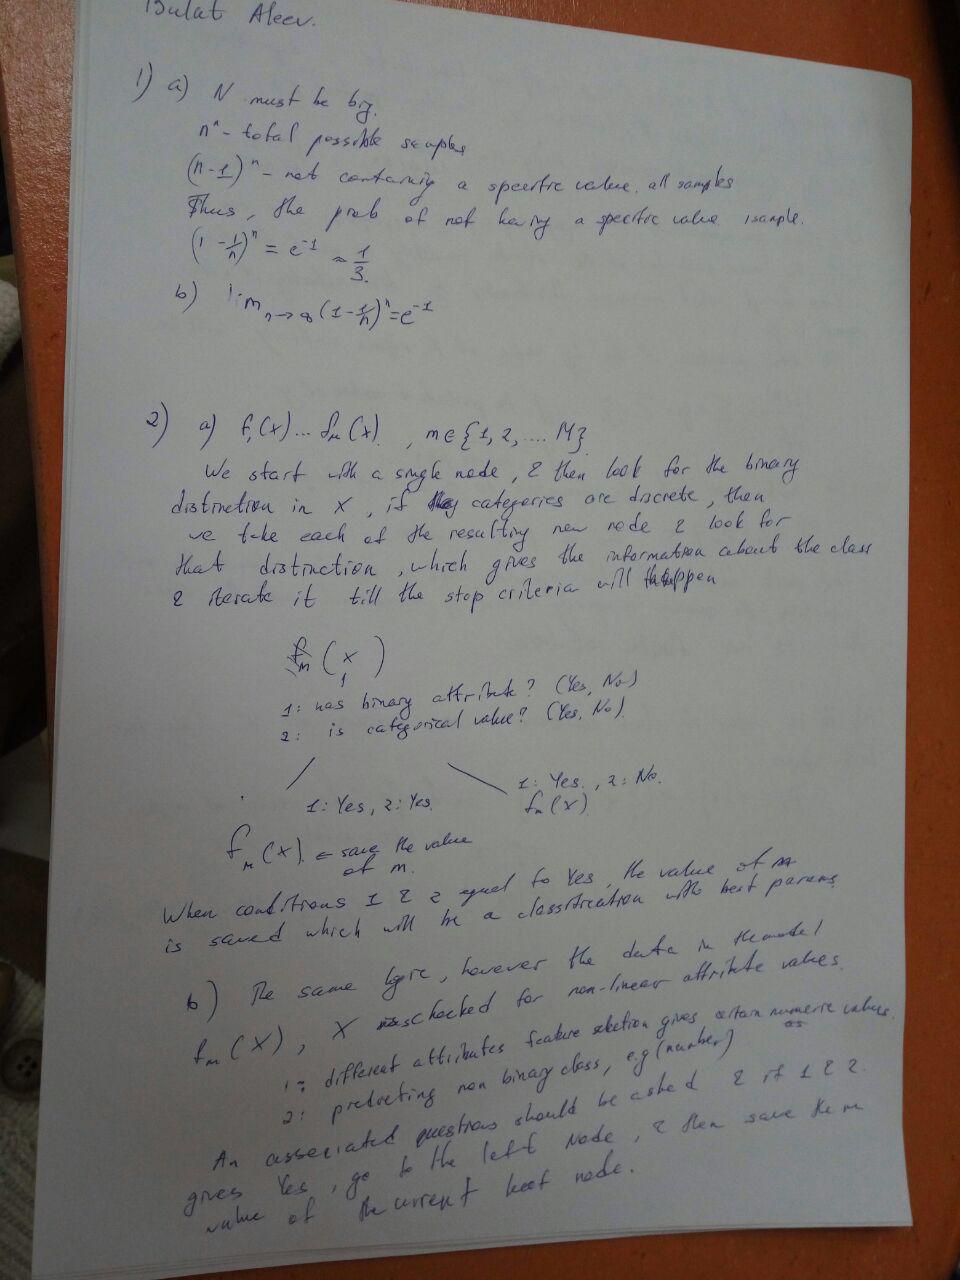 Bulat Aleev.
1) a) N must be big.
nⁿ - total possible samples
(n-1)ⁿ - not containing a specific value, all samples
Thus, the prob of not having a specific value sample.
(1 - 1/n)ⁿ = e⁻¹ ≈ 1/3.
b) lim n→∞ (1-1/n)ⁿ = e⁻¹
2) a) f₁(x)... fₘ(x), m∈{1, 2, .... M}
We start with a single node, & then look for the binary
distinction in X, if categories are discrete, then
we take each of the resulting new node & look for
that distinction, which gives the information about the class
& iterate it till the stop criteria will happen
fₘ(x)
1: has binary attribute? (Yes, No)
2: is categorical value? (Yes, No).
1: Yes, 2: Yes. 1: Yes., 2: No.
fₘ(x)
fₘ(x) ← save the value
of m.
When conditions 1 & 2 equal to Yes, the value of m
is saved which will be a classification with best params.
b) The same logic, however the data in the model
fₘ(x), X is checked for non-linear attribute values.
1: different attributes feature selection gives certain numeric values.
2: predicting non binary class, e.g (number)
An associated questions should be asked & if 1 & 2.
gives Yes, go to the left Node, & then save the m
value of the current node.